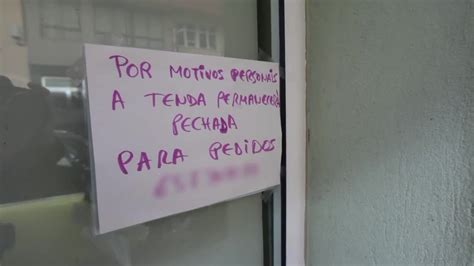 POR MOTIVOS PERSONAIS
A TENDA PERMANECERÁ
PECHADA
PARA PEDIDOS